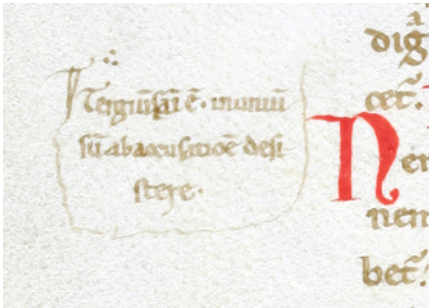 Tergiũsari ẽ. iniuriũ
sũ ab accusatiõe desi
stere.
dig̃
cet̃.
N
er
nem
bet̃.